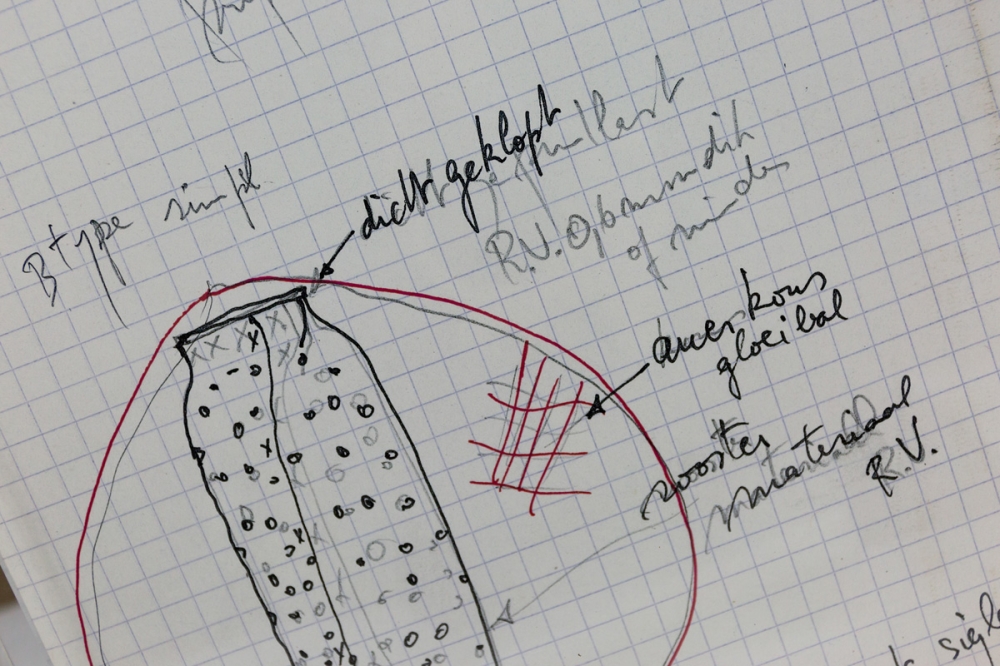 B type simpel
dicht geklopt
R.V. 0,6 mm dik
of minder
auer kous
gloeibal
rooster
materiaal
R.V.